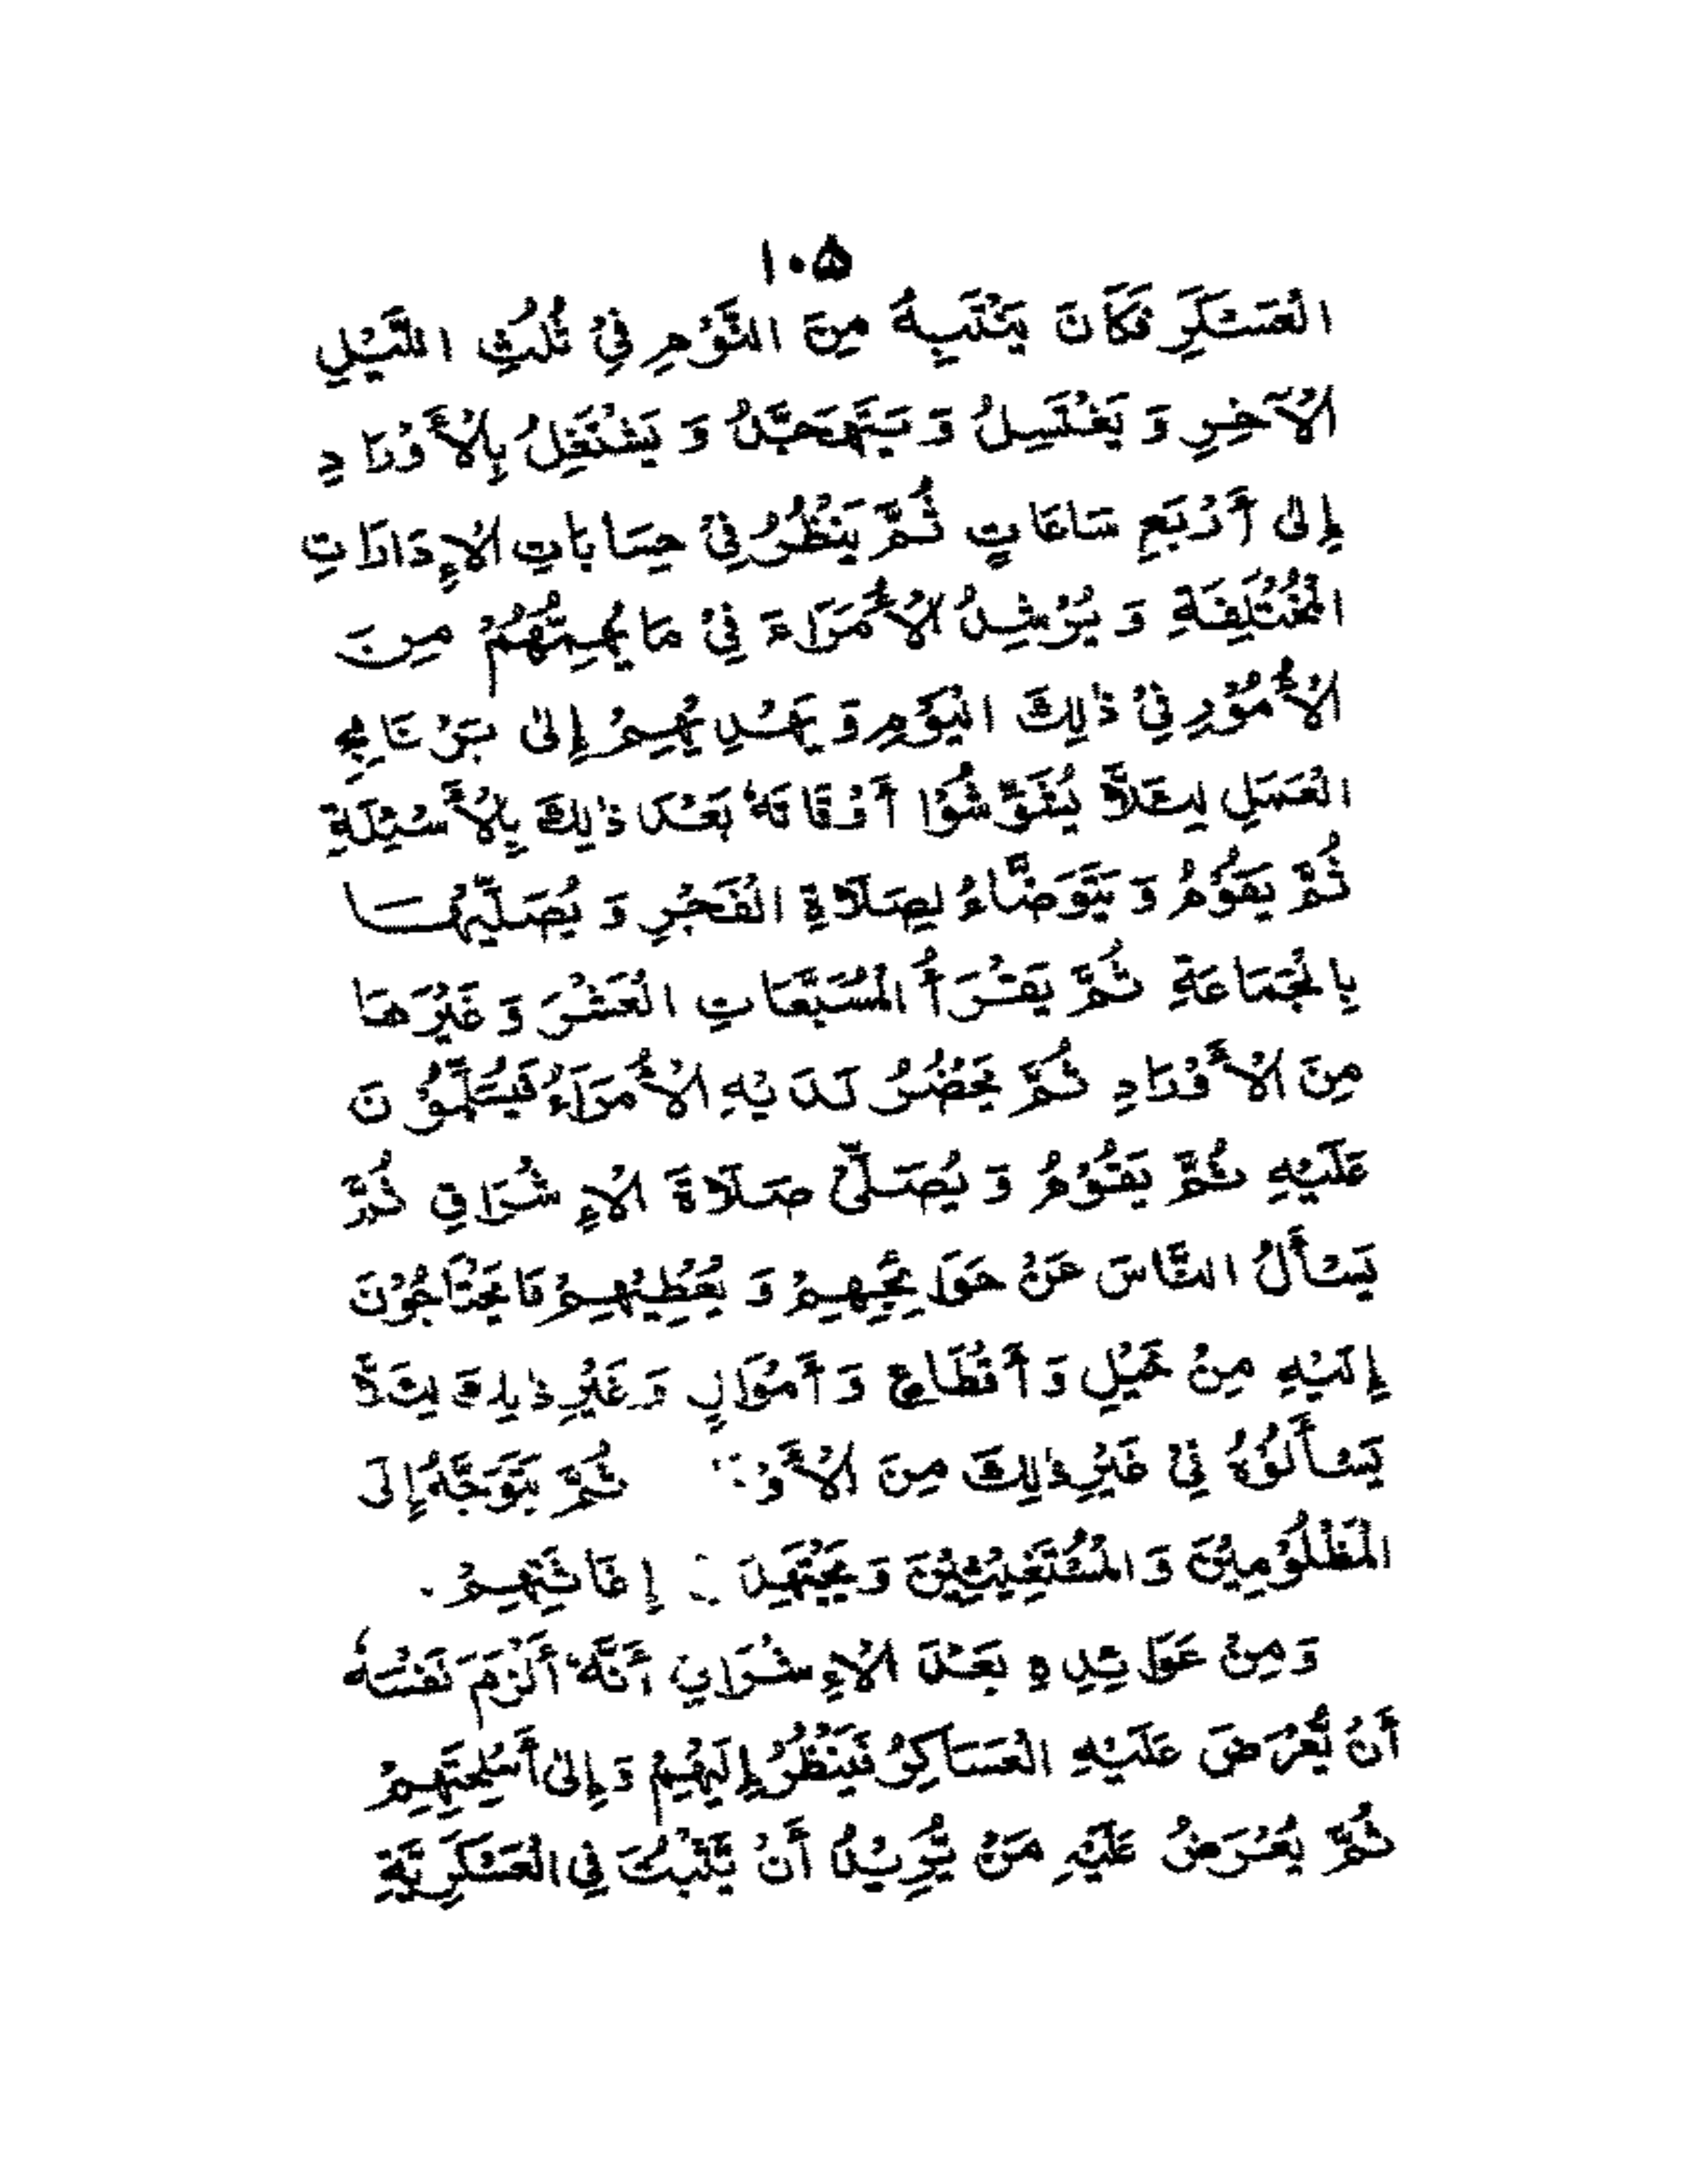 ۱۰۵
الْعَسْكَرِ فَكَانَ يَنْتَبِهُ مِنَ النَّوْمِ فِيْ ثُلُثِ اللَّيْلِ
الْآخِرِ وَ يَغْتَسِلُ وَ يَتَهَجَّدُ وَ يَشْتَغِلُ بِالْأَوْرَادِ
إِلىٰ أَرْبَعِ سَاعَاتٍ ثُمَّ يَنْظُرُ فِيْ حِسَابَاتِ الْإِدَارَاتِ
الْمُخْتَلِفَةِ وَ يُرْشِدُ الْأُمَرَاءَ فِيْ مَا يُهِمُّهُمْ مِنَ
الْأُمُوْرِ فِيْ ذٰلِكَ الْيَوْمِ وَ يَهْدِيْهِمْ إِلىٰ بَرْنَامِجِ
الْعَمَلِ لِئَلاَّ يُشَوِّشُوْا أَوْقَاتَهٗ بَعْدَ ذٰلِكَ بِالْأَسْئِلَةِ
ثُمَّ يَقُوْمُ وَ يَتَوَضَّاءُ لِصَلَاةِ الْفَجْرِ وَ يُصَلِّيْهَا
بِالْجَمَاعَةِ ثُمَّ يَقْرَأُ الْمُسَبَّعَاتِ الْعَشْرَ وَ غَيْرَهَا
مِنَ الْأَوْرَادِ ثُمَّ يَحْضُرُ لَدَيْهِ الْأُمَرَاءُ فَيُسَلِّمُوْنَ
عَلَيْهِ ثُمَّ يَقُوْمُ وَ يُصَلِّيْ صَلَاةَ الْإِشْرَاقِ ثُمَّ
يَسْأَلُ النَّاسَ عَنْ حَوَائِجِهِمْ وَ يُعْطِيْهِمْ مَا يَحْتَاجُوْنَ
إِلَيْهِ مِنْ خَيْلٍ وَ أَقْطَاعٍ وَ أَمْوَالٍ وَ غَيْرِ ذٰلِكَ لِئَلاَّ
يَسْأَلُوْهُ فِيْ غَيْرِ ذٰلِكَ مِنَ ثُمَّ يَتَوَجَّهُ إِلَى
الْمَظْلُوْمِيْنَ وَ الْمُسْتَغِيْثِيْنَ وَ يَجْتَهِدُ إِغَاثَتِهِمْ .
وَ مِنْ عَوَائِدِهٖ بَعْدَ الْإِشْرَاقِ أَنَّهٗ أَلْزَمَ نَفْسَهٗ
أَنْ يُّعْرَضَ عَلَيْهِ الْعَسَاكِرُ فَيَنْظُرُ إِلَيْهِمْ وَ إِلىٰ أَسْلِحَتِهِمْ
ثُمَّ يُعْرَضُ عَلَيْهِ مَنْ يُّرِيْدُ أَنْ يَّثْبُتَ فِي الْعَسْكَرِيَّةِ